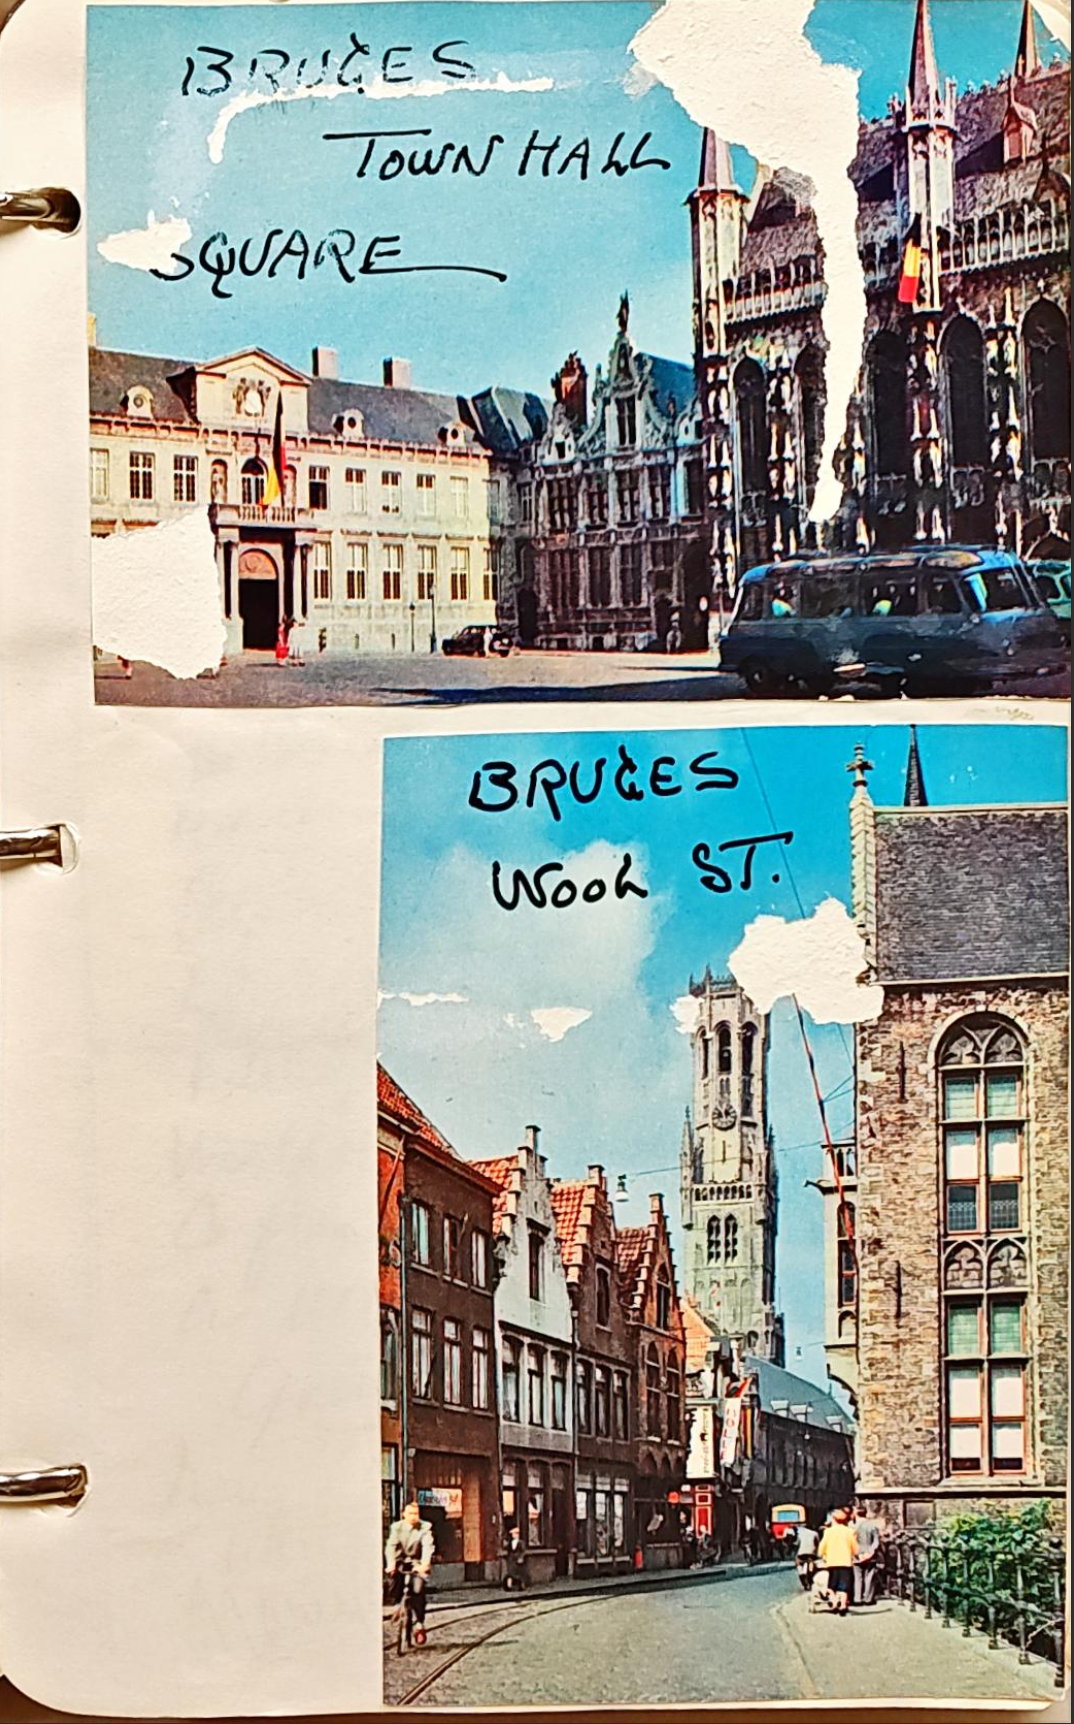 BRUGES
TOWN HALL
SQUARE
BRUGES
WOOL ST.